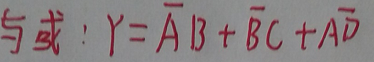 与或：Y = A̅B + B̅C + AD̅